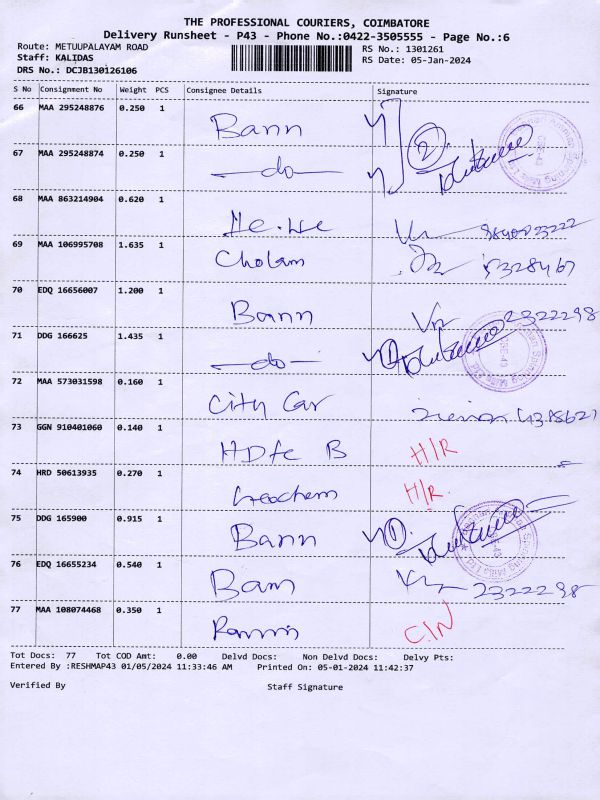 THE PROFESSIONAL COURIERS, COIMBATORE
Delivery Runsheet - P43 - Phone No.:0422-3505555 - Page No.:6
Route: METUUPALAYAM ROAD RS No.: 1301261
Staff: KALIDAS RS Date: 05-Jan-2024
DRS No.: DCJB130126106
S No Consignment No Weight PCS Consignee Details Signature
66 MAA 295248876 0.250 1 Bann
67 MAA 295248874 0.250 1 -do- 2
68 MAA 863214904 0.620 1
69 MAA 106995708 1.635 1 Cholam 5328467
70 EDQ 16656007 1.200 1 Bann 2322298
71 DDG 166625 1.435 1 -do- 1
72 MAA 573031598 0.160 1 City Car
73 GGN 910401060 0.140 1 HDfc B H/R
74 HRD 50613935 0.270 1 Geochem H/R.
75 DDG 165900 0.915 1 Bann 1
76 EDQ 16655234 0.540 1 Bann 2322298
77 MAA 108074468 0.350 1 C/N
Tot Docs: 77 Tot COD Amt: 0.00 Delvd Docs: Non Delvd Docs: Delvy Pts:
Entered By :RESHMAP43 01/05/2024 11:33:46 AM Printed On: 05-01-2024 11:42:37
Verified By Staff Signature